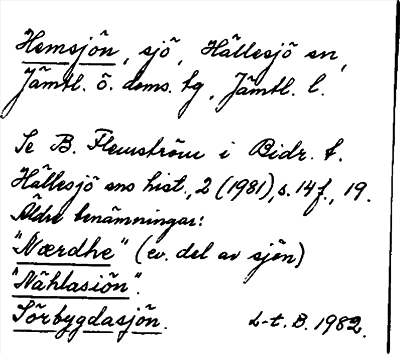 Hemsjön, sjö, Hällesjö sn,
Jämtl. ö. doms. tg, Jämtl. l.
Se B. Flemström i Bidr. t.
Hällesjö sns hist., 2 (1981), s. 14 f., 19.
Äldre benämningar:
"Nærdhe" (ev. del av sjön)
"Nählasiön".
Sörbygdasjön.
L-t. B. 1982.